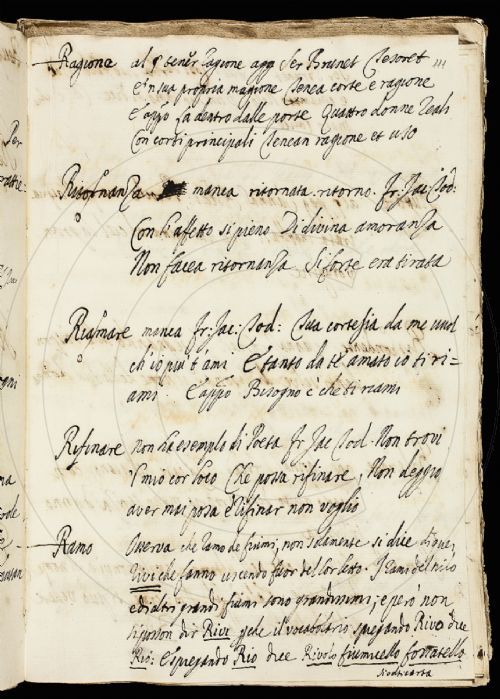 Ragione al § tener ragione agg Ser Brunet Tesoret
E in sua propria magione Tenea corte e ragione
E app. La dentro dalle porte Quattro donne reali
Con corti principali Tenean ragione et uso
Ritornanza manca ritornata. ritorno. Fr: Jac: Tod:
Con l'affetto si pieno Di divina amoranza
Non facea ritornanza Si forte era tirata
Riamare manca Fr: Jac: Tod: Sua cortesia da me vuol
ch'io più t'ami E tanto da te amato io ti ri=
ami. E app. Bisogno è che ti riami
Rifinare non ha esemplo di Poeta Fr Jac Tod. Non trovi
'l mio cor loco Che possa rifinare, Non deggio
aver mai posa E rifinar non voglio
Ramo Osserva che Ramo de fiumi, non solamente si dice di que,
rivi che fanno uscendo fuor del lor letto. I rami del nilo
ed altri grandi fiumi sono grandissimi, e però non
si posson dir Rivi che il vocabolario spiegando Rivo dice
Rio: E spiegando Rio dice Rivolo fiumicello fossatello